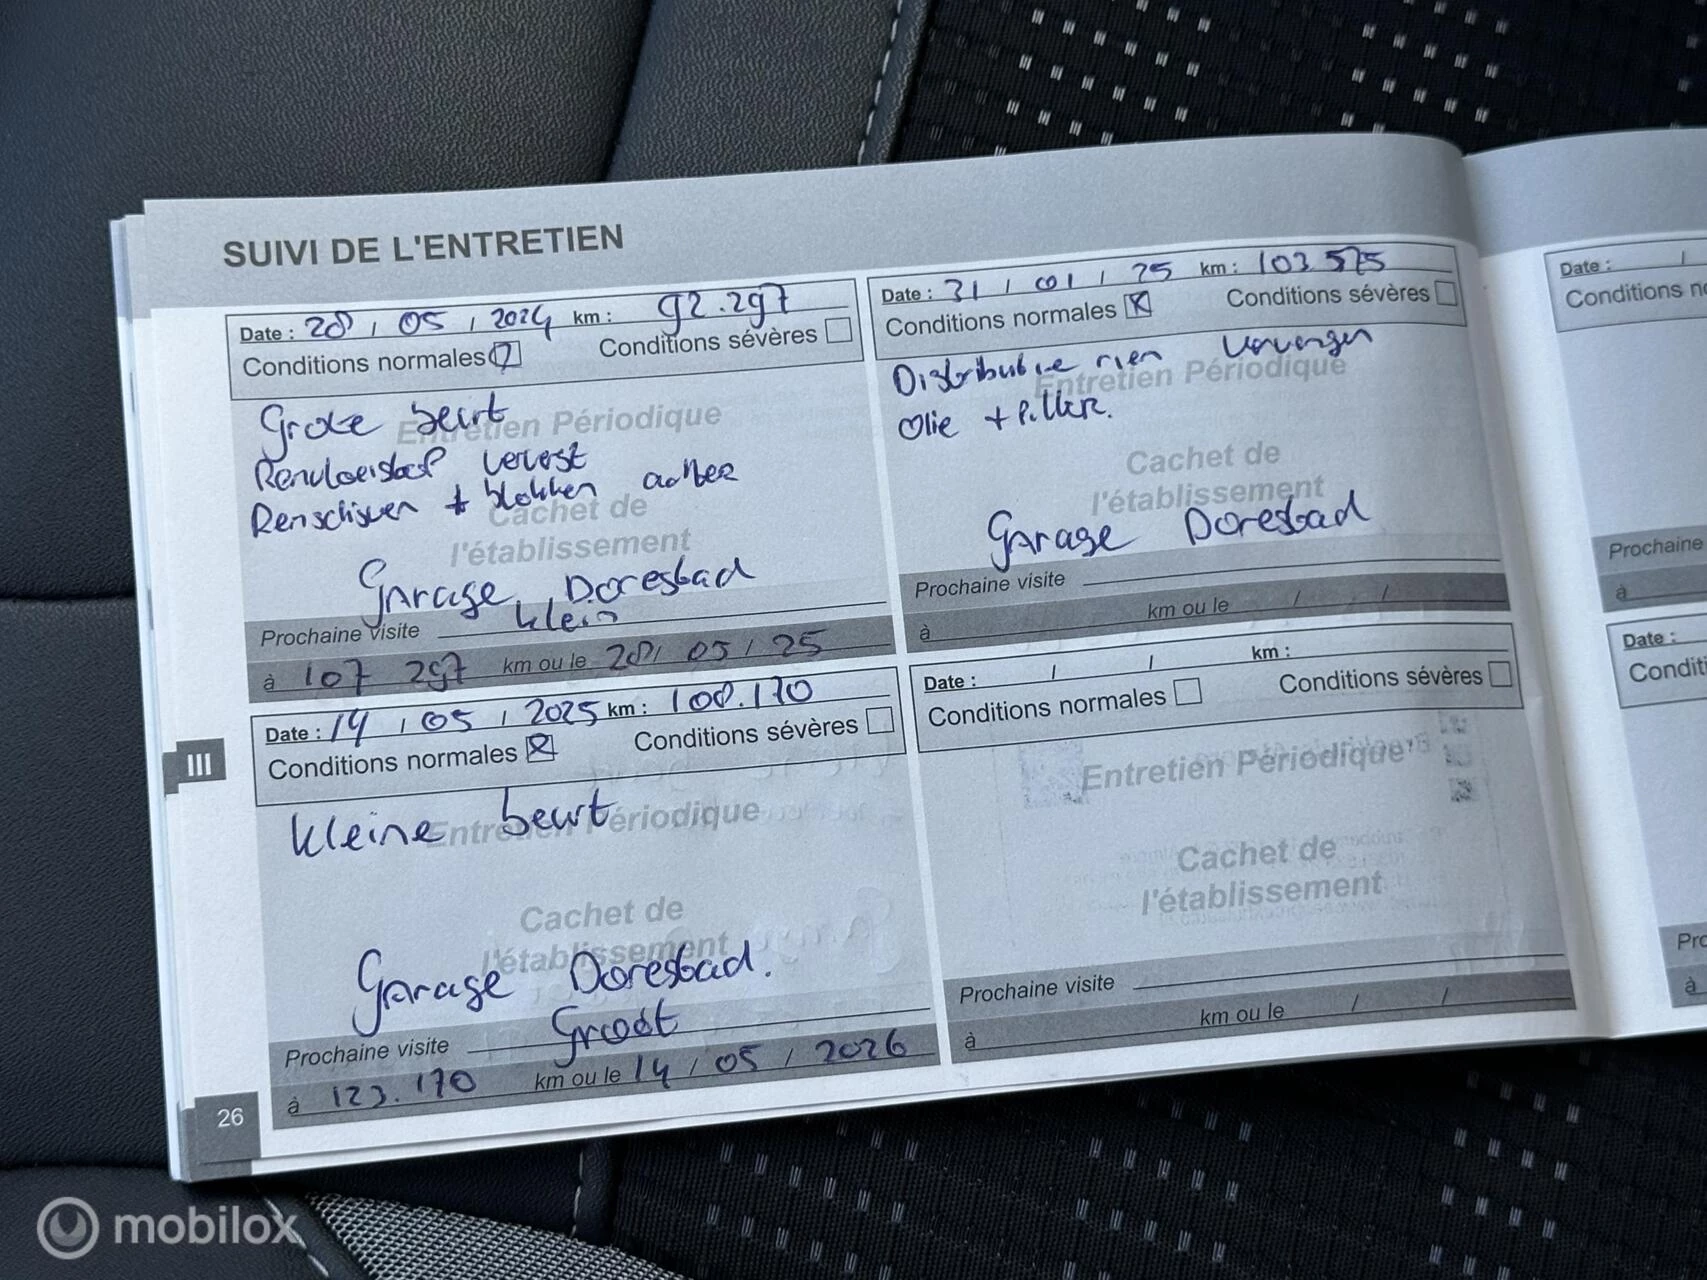 SUIVI DE L'ENTRETIEN
Date : 28 / 05 / 2024 km : 92.297
Conditions normales Conditions sévères
Entretien Périodique
Grote beurt
Remvloeistof ververst
Remschijven + blokken achter
Cachet de
l'établissement
Garage Dorestad
Prochaine visite klein
à 107 297 km ou le 28 / 05 / 25
Date : 31 / 01 / 25 km : 103.525
Conditions normales Conditions sévères
Distributie riem vervangen
Entretien Périodique
Olie + filter.
Cachet de
l'établissement
Garage Dorestad
Prochaine visite
à km ou le / /
Date : 14 / 05 / 2025 km : 108.170
Conditions normales Conditions sévères
kleine beurt
Entretien Périodique
Cachet de
l'établissement
Garage Dorestad.
Prochaine visite Groot
à 123.170 km ou le 14 / 05 / 2026
Date : / / km :
Conditions normales Conditions sévères
Entretien Périodique
Cachet de
l'établissement
Prochaine visite
à km ou le / /
Date : /
Conditions no
Prochaine
à
Date :
Conditi
Pro
à
III
26
mobilox